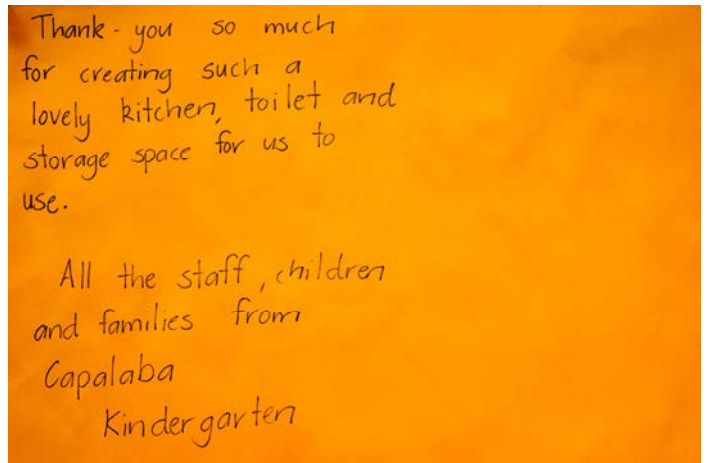 Thank-you so much
for creating such a
lovely kitchen, toilet and
storage space for us to
use.
All the staff, children
and families from
Capalaba
Kindergarten